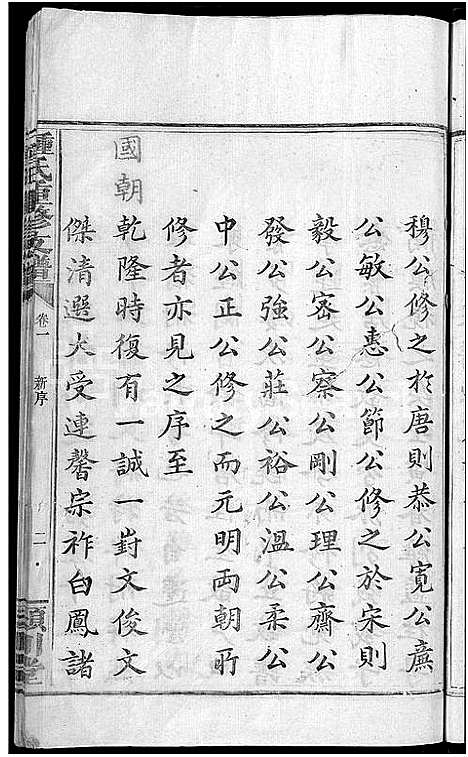 穆公修之於唐則恭公寬公廉
公敏公惠公節公修之於宋則
毅公密公察公剛公理公齋公
發公強公莊公裕公溫公柔公
中公正公修之而元明両朝所
修者亦見之序至
國朝乾隆時復有一誠一對文俊文
傑清選大受連馨宗祚白鳳諸
鍾氏重修支譜
卷一
新序
二
潁川堂